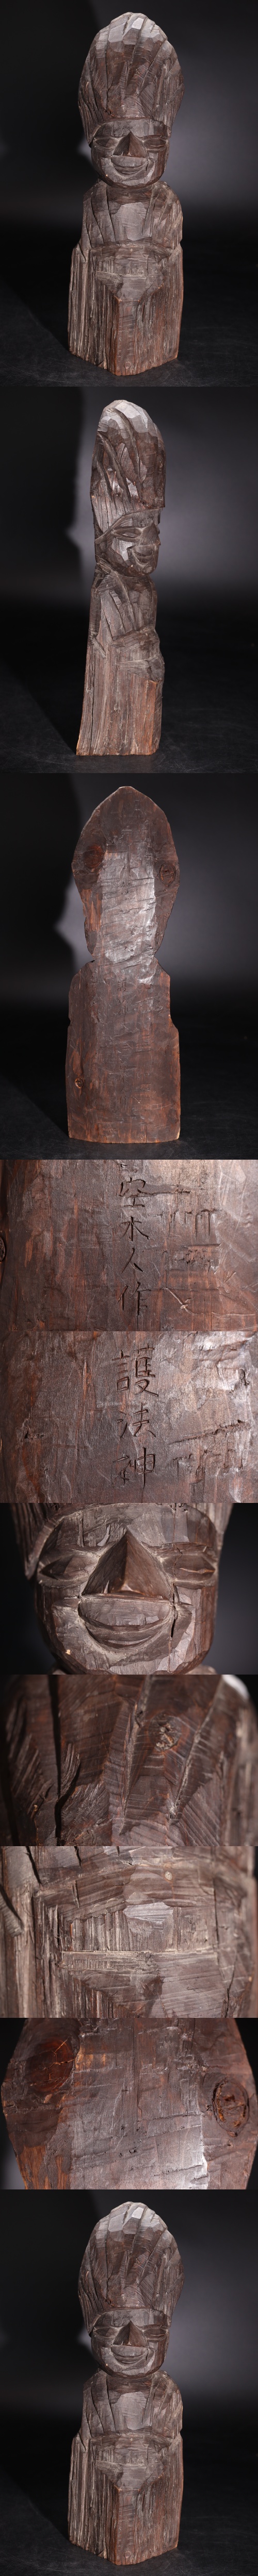 空木人作
護法神